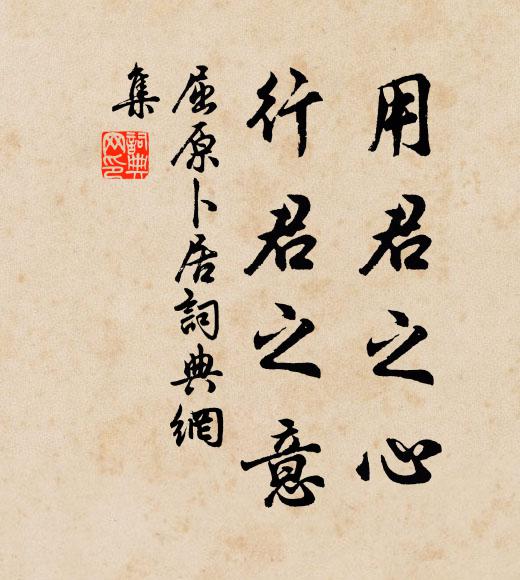 用君之心
行君之意
屈原卜居詞典網
集
詞典網印